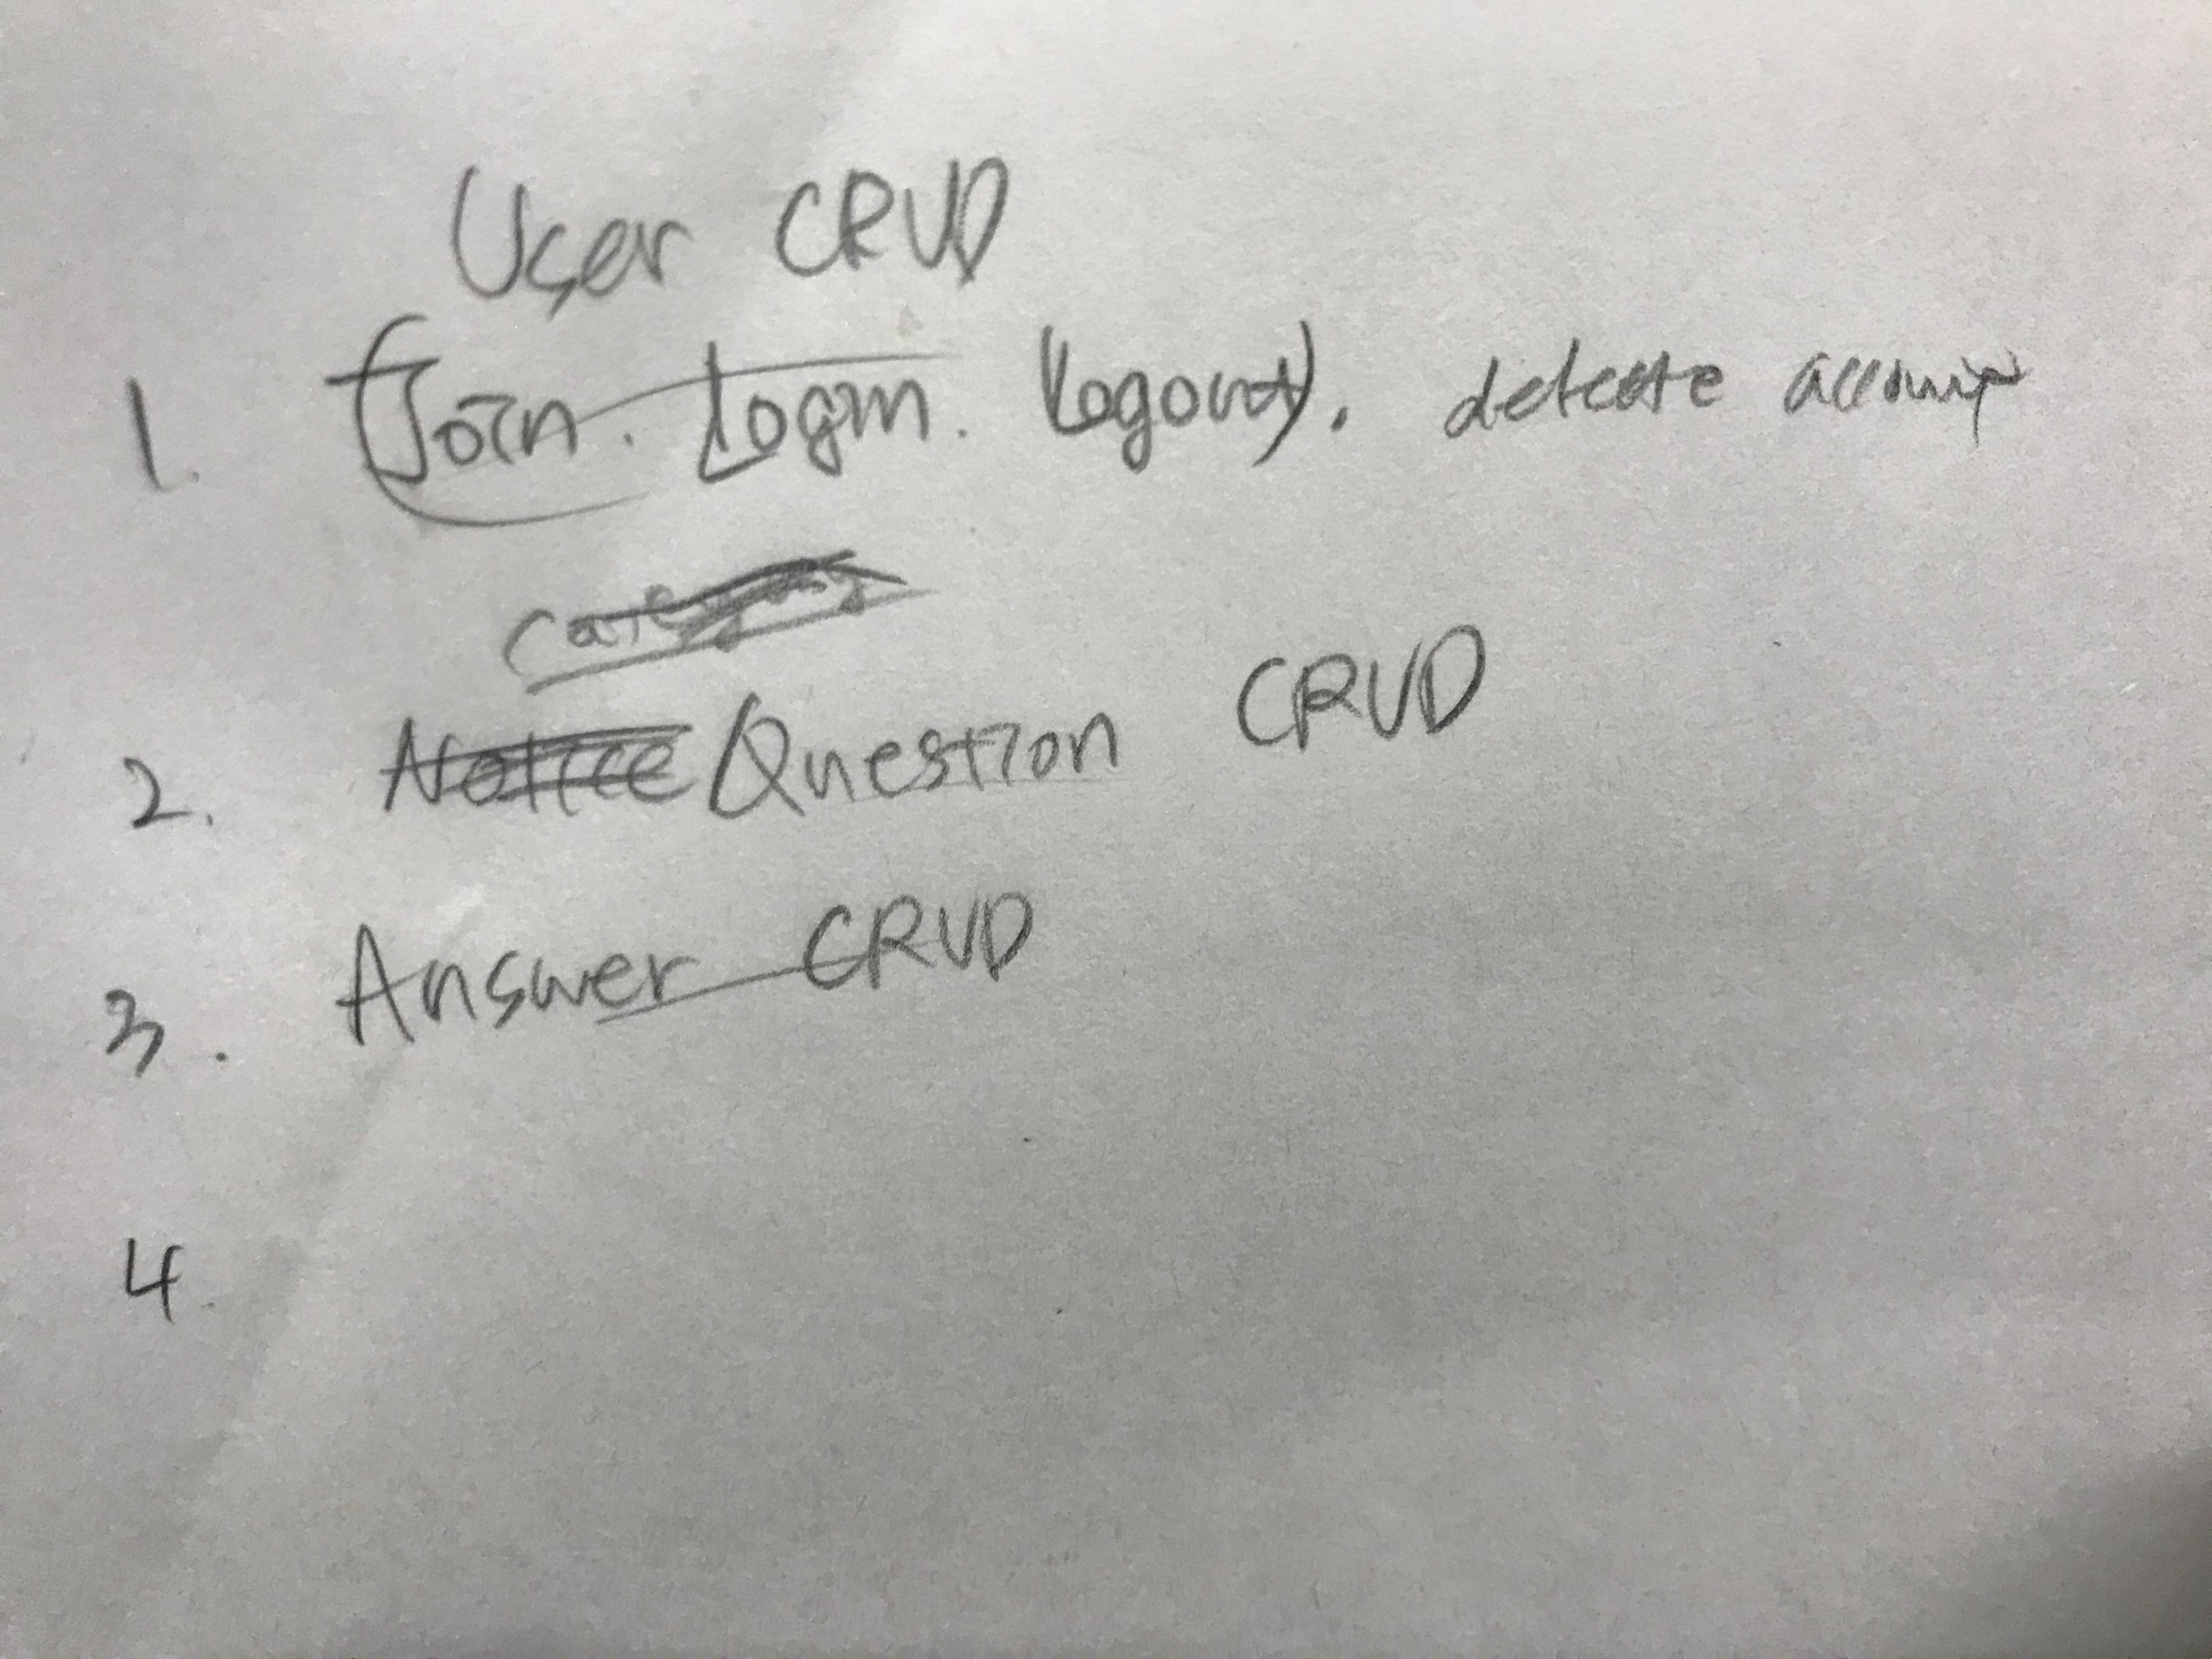 User CRUD
1. (Join. Login. logout). delete account
category
2. Notice Question CRUD
3. Answer CRUD
4.